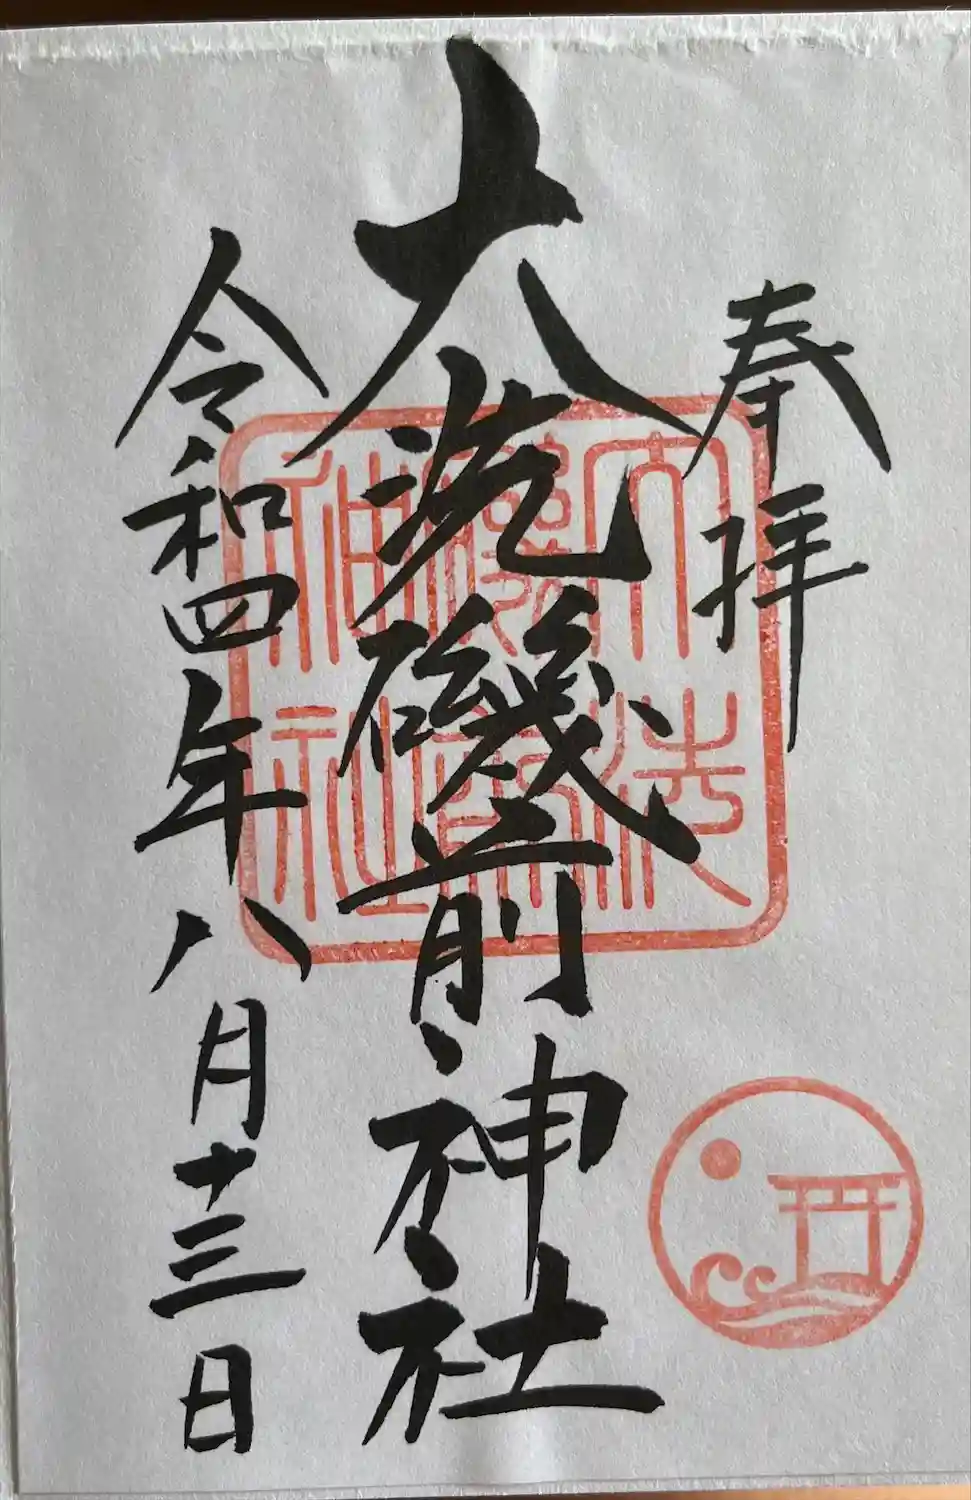 奉拝
大洗磯前神社
令和四年八月十三日
大洗
磯前
神社